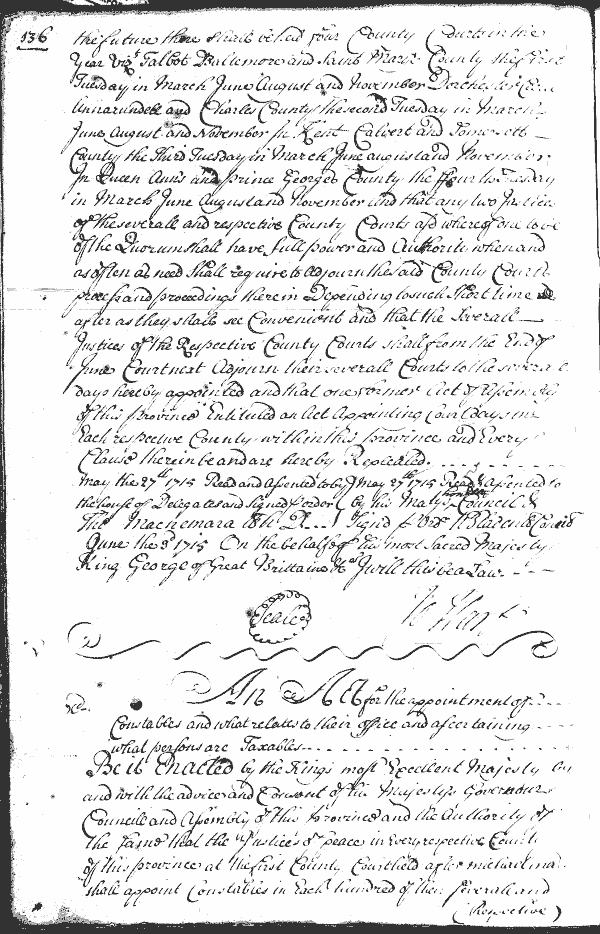 136
the future there shall be held four County Courts in the
Year Viz.t Talbot Baltemore and Saint Mary's County the first
Tuesday in March June August and November Dorchester Cecil
Annarundell and Charles County the second Tuesday in March
June August and November In Kent Calvert and Somersett
County the Third Tuesday in March June august and November
In Queen Ann's and prince George's County the ffourth Tuesday
in March June August and November And that any two Justices
of the severall and respective County Courts afsd whereof one to be
of the Quorum shall have full power and Authority when and
as often as need Shall require to Adjourn the said County Courts
process and proceedings therein Depending to such Short time
after as they shall see Convenient and that the Severall
Justices of the Respective County Courts shall from the End of
June Court next Adjourn their severall Courts to the several
days hereby appointed and that one former Act of Assembly
of this province Entituled an Act Appointing Court days in
Each respective County within this province and Every
Clause therein be and are hereby Repealed.
May the 27th 1715 Read and Assented to by May 27th 1715 Read & assented to
the house of Delegates and signed p order by his Maty's Council &
Tho: Macnemara Sign'd p Ord.r
June the 3d 1715 On the behalfe of his most Sacred Majesty
King George of Great Brittaine &ca I will this be a Law
Seale
Jo Hart
An Act for the appointment of
Constables and what relates to their office and ascertaining
what persons are Taxables
Be it Enacted by the Kings most Excellent Majesty by
and with the advice and Consent of his Majestys Governour
Councill and Assembly of this Province and the Authority of
the same that the Justices of peace in Every respective County
of this province at the first County Court held after michaelmas
shall appoint Constables in Each hundred of their severall and
(Respective)